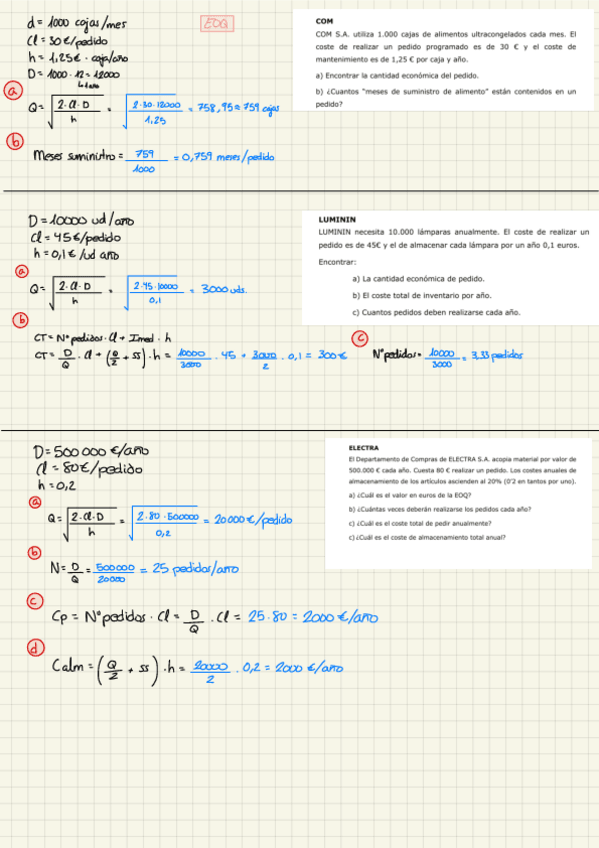 EOQ
d = 1000 cajas/mes
Cl = 30 €/pedido
h = 1,25€ · caja/año
D = 1000 · 12 = 12000
COM
COM S.A. utiliza 1.000 cajas de alimentos ultracongelados cada mes. El
coste de realizar un pedido programado es de 30 € y el coste de
mantenimiento es de 1,25 € por caja y año.
a) Encontrar la cantidad económica del pedido.
b) ¿Cuantos "meses de suministro de alimento" están contenidos en un
pedido?
a
Q = √(2·Cl·D / h) = √(2·30·12000 / 1,25) = 758,95 ≈ 759 cajas
b
Meses suministro = 759 / 1000 = 0,759 meses/pedido
D = 10000 ud/año
Cl = 45€/pedido
h = 0,1 €/ud año
LUMININ
LUMININ necesita 10.000 lámparas anualmente. El coste de realizar un
pedido es de 45€ y el de almacenar cada lámpara por un año 0,1 euros.
Encontrar:
a) La cantidad económica de pedido.
b) El coste total de inventario por año.
c) Cuantos pedidos deben realizarse cada año.
a
Q = √(2·Cl·D / h) = √(2·45·10000 / 0,1) = 3000 uds.
b
CT = Nº pedidos · Cl + Imed · h
CT = D/Q · Cl + (Q/2 + SS) · h = 10000/3000 · 45 + 3000/2 · 0,1 = 300€
c
Nº pedidos = 10000/3000 = 3,33 pedidos
D = 500 000 €/año
Cl = 80€/pedido
h = 0,2
ELECTRA
El Departamento de Compras de ELECTRA S.A. acopia material por valor de
500.000 € cada año. Cuesta 80 € realizar un pedido. Los costes anuales de
almacenamiento de los artículos ascienden al 20% (0'2 en tantos por uno).
a) ¿Cuál es el valor en euros de la EOQ?
b) ¿Cuántas veces deberán realizarse los pedidos cada año?
c) ¿Cuál es el coste total de pedir anualmente?
c) ¿Cuál es el coste de almacenamiento total anual?
a
Q = √(2·Cl·D / h) = √(2·80·500000 / 0,2) = 20000 €/pedido
b
N = D/Q = 500000/20000 = 25 pedidos/año
c
Cp = Nº pedidos · Cl = D/Q · Cl = 25·80 = 2000 €/año
d
Calm = (Q/2 + SS) · h = 20000/2 · 0,2 = 2000 €/año